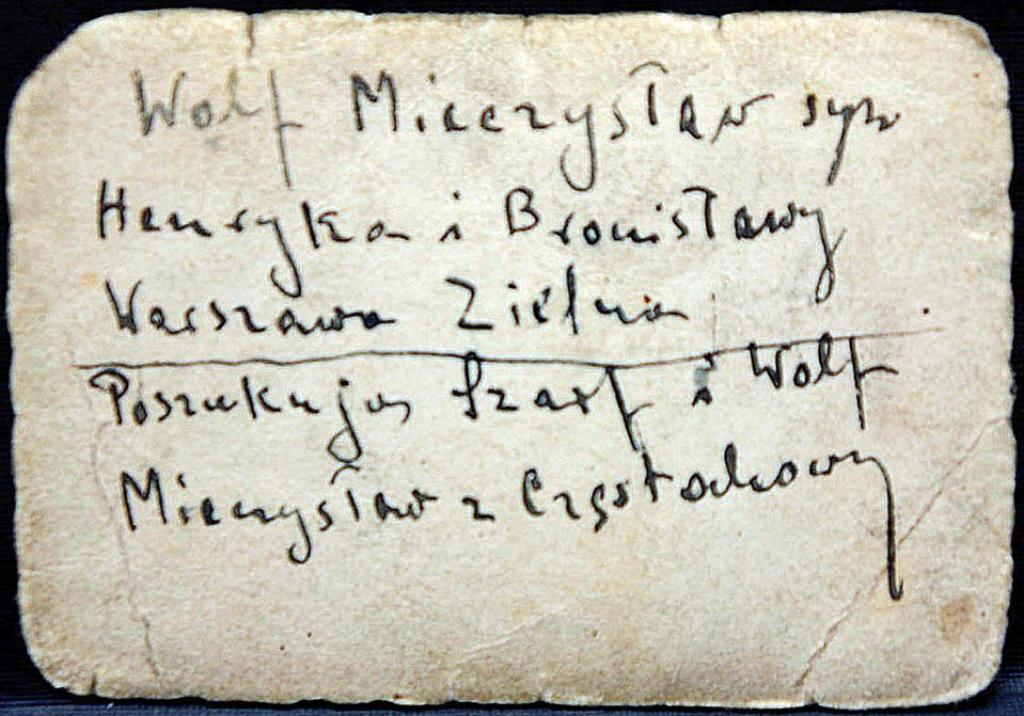 Wolf Mieczysław syn
Henryka i Bronisławy
Warszawa Zielna
Poszukują Szarf i Wolf
Mieczysław z Częstochowy